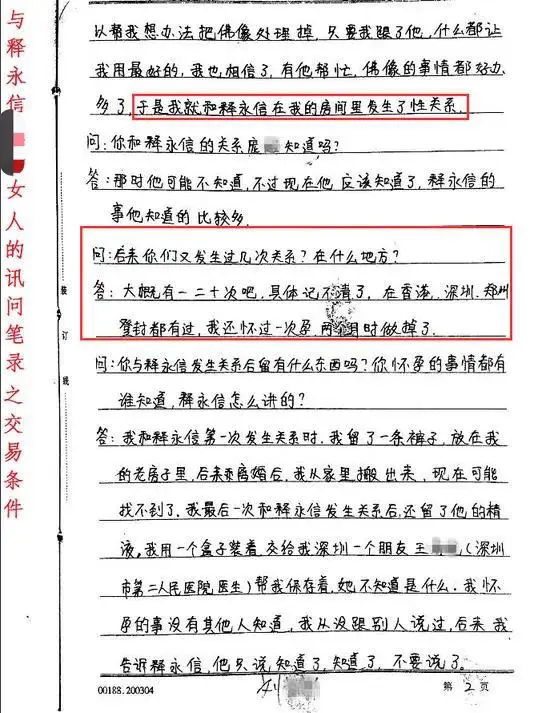 与释永信
女人的讯问笔录之交易条件
装
订
线
以帮我想办法把佛像处理掉,只要我跟了他,什么都让
我用最好的,我也相信了,有他帮忙,佛像的事情都好办
多了,于是我就和释永信在我的房间里发生了性关系.
问:你和释永信的关系庞 知道吗?
答:那时他可能不知道,不过现在他应该知道了,释永信的
事他知道的比较多.
问:后来你们又发生过几次关系?在什么地方?
答:大概有一二十次吧,具体记不清了,在香港、深圳、郑州
登封都有过,我还怀过一次孕,两个月时做掉了.
问:你与释永信发生关系后留有什么东西吗?你怀孕的事情都有
谁知道,释永信怎么讲的?
答:我和释永信第一次发生关系时,我留了一条裤子,放在我
的老房子里,后来离婚后,我从家里搬出来,现在可能
找不到了.我最后一次和释永信发生关系后,还留了他的精
液,我用一个盒子装着,交给我深圳一个朋友王 (深圳
市第二人民医院医生)帮我保存着,她不知道是什么.我怀
孕的事没有其他人知道,我从没跟别人说过,后来我
告诉释永信,他只说知道了,知道了,不要说了。
00188.200304
刘
第2页